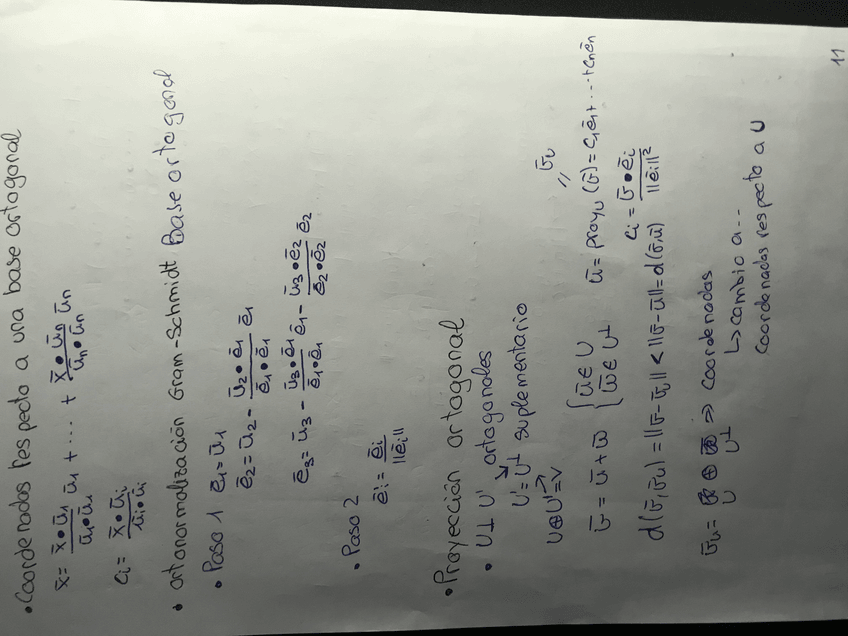 • Coordenadas respecto a una base ortogonal
x̄ = (x̄•ū1)/(ū1•ū1) ū1 + ... + (x̄•ūn)/(ūn•ūn) ūn
ci = (x̄•ūi)/(ūi•ūi)
• Ortonormalización Gram-Schmidt Base ortogonal
• Paso 1 ē1 = ū1
ē2 = ū2 - (ū2•ē1)/(ē1•ē1) ē1
ē3 = ū3 - (ū3•ē1)/(ē1•ē1) ē1 - (ū3•ē2)/(ē2•ē2) ē2
• Paso 2
ēi = ēi/||ēi||
• Proyección ortogonal
• U⊥U' ortogonales
U' = U⊥ suplementario
U⊕U' = V
v̄U
//
v̄ = ū + w̄ { ū ∈ U w̄ ∈ U⊥ ū = proyU (v̄) = c1ē1 + ... + cnēn
ci = (v̄•ēi)/||ēi||²
d(v̄,v̄U) = ||v̄-v̄U|| < ||v̄-ū|| = d(v̄,ū)
v̄U = ⊕ ⇒ coordenadas
U U⊥ ↳ cambio a...
coordenadas respecto a U
11